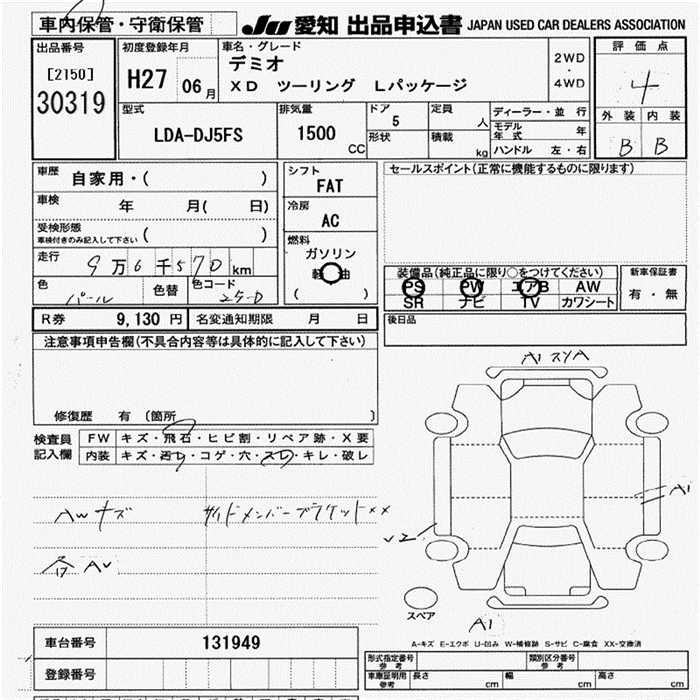 車内保管・守衛保管
JU 愛知 出品申込書 JAPAN USED CAR DEALERS ASSOCIATION
出品番号
[2150]
30319
初度登録年月
H27 06月
車名・グレード
デミオ
XD ツーリング Lパッケージ
2WD
・
4WD
評価点
4
外装 内装
B B
型式
LDA-DJ5FS
排気量
1500
CC
ドア
5
形状
定員
人
積載
kg
ディーラー・並行
モデル年式 年
ハンドル 左・右
車歴
自家用・( )
車検
年 月( 日)
受検形態
車検付きのみ記入して下さい ( )
走行
9万6千570km
色
パール
色替
色コード
25D
シフト
FAT
冷房
AC
燃料
ガソリン
軽油
( )
セールスポイント(正常に機能するものに限ります)
装備品(純正品に限り○をつけてください)
PS PW エアB AW
SR ナビ TV カワシート
新車保証書
有・無
R券 9,130円 名変通知期限 月 日
後日品
注意事項申告欄(不具合内容等は具体的に記入して下さい)
修復歴 有 〔箇所 〕
検査員
記入欄
FW キズ・飛石・ヒビ割・リペア跡・X要
内装 キズ・汚れ・コゲ・穴・スレ・キレ・破レ
AWキズ
サイドメンバーブラケットXX
各AU
A1 スリA
A1
U2
A1
スペア
A-キズ E-エクボ U-凹み W-補修跡 S-サビ C-腐食 XX-交換済
車台番号 131949
登録番号
形式指定番号
参考
類別区分番号
参考
車庫証明用
参考
長さ cm 幅 cm 高さ cm